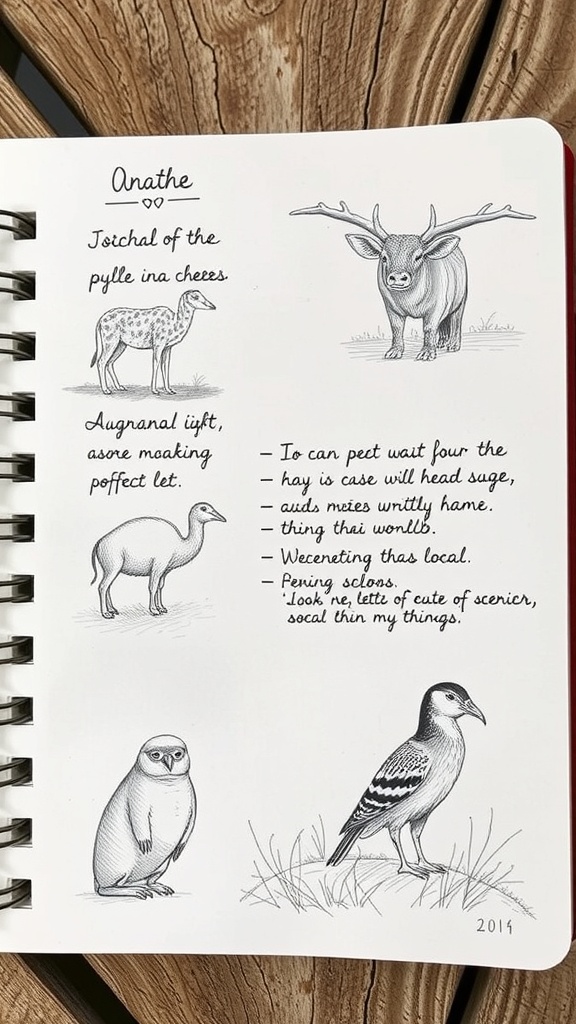 Anathe
Joichal of the
pylle ina cheees
Augnanal iijkt,
asore moaking
poffect let.
– Io can pect wait four the
– hay is case will head suge,
– auds meies writtly hame.
– thing thai wonllb.
– Weceneting thas local.
– Pening sclons.
'Look ne, lettz of cute of scenicr,
socal thin my things.'
2014